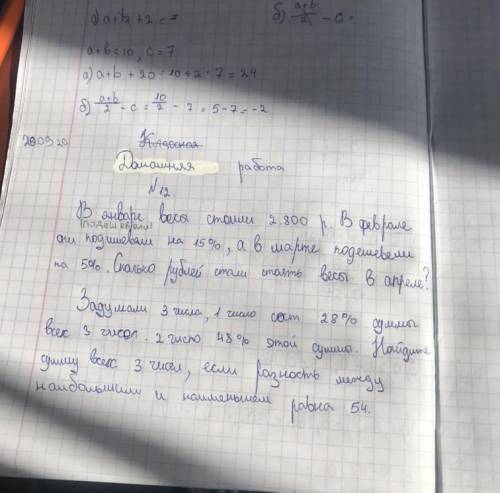 а) a+b+2c=
б) a+b/2 - c =
a+b=10, c=7
а) a+b+2c=10+2·7=24
б) a+b/2 - c = 10/2 - 7 = 5-7=-2
280920
Класная
Домашняя работа
N 12.
В январе весы стоили 2.800 р. В феврале
(подешевели)
они подешевели на 15%, а в марте подешевели
на 5%. Сколько рублей стали стоять весы в апреле?
Задумали 3 числа, 1 число сост 28% суммы
всех 3 чисел. 2 число 48% этой суммы. Найдите
сумму всех 3 чисел, если разность между
наибольшим и наименьшем равна 54.